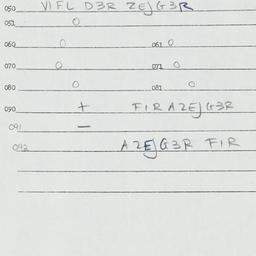 050 VIFL D3R ZEJG3R
051 0
060 0 061 0
070 0 071 0
080 0 081 0
090 + FIR AZEJG3R
091 —
092 AZEJG3R FIR